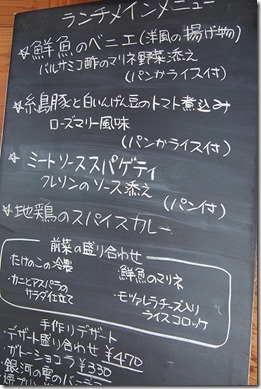 ランチメインメニュー
☆鮮魚のベニエ(洋風の揚げ物)
バルサミコ酢のマリネ野菜添え
(パンかライス付)
☆糸島豚と白いんげん豆のトマト煮込み
ローズマリー風味
(パンかライス付)
☆ミートソーススパゲティ
フレソンのソース添え
(パン付)
☆地鶏のスパイスカレー
前菜の盛り合わせ
・たけのこの冷製
・カニとアスパラの
サラダ仕立て
・鮮魚のマリネ
・モツァレラチーズ入り
ライスコロッケ
手作りデザート
・デザート盛り合わせ ¥470
・ガトーショコラ ¥330
・銀河の雫の